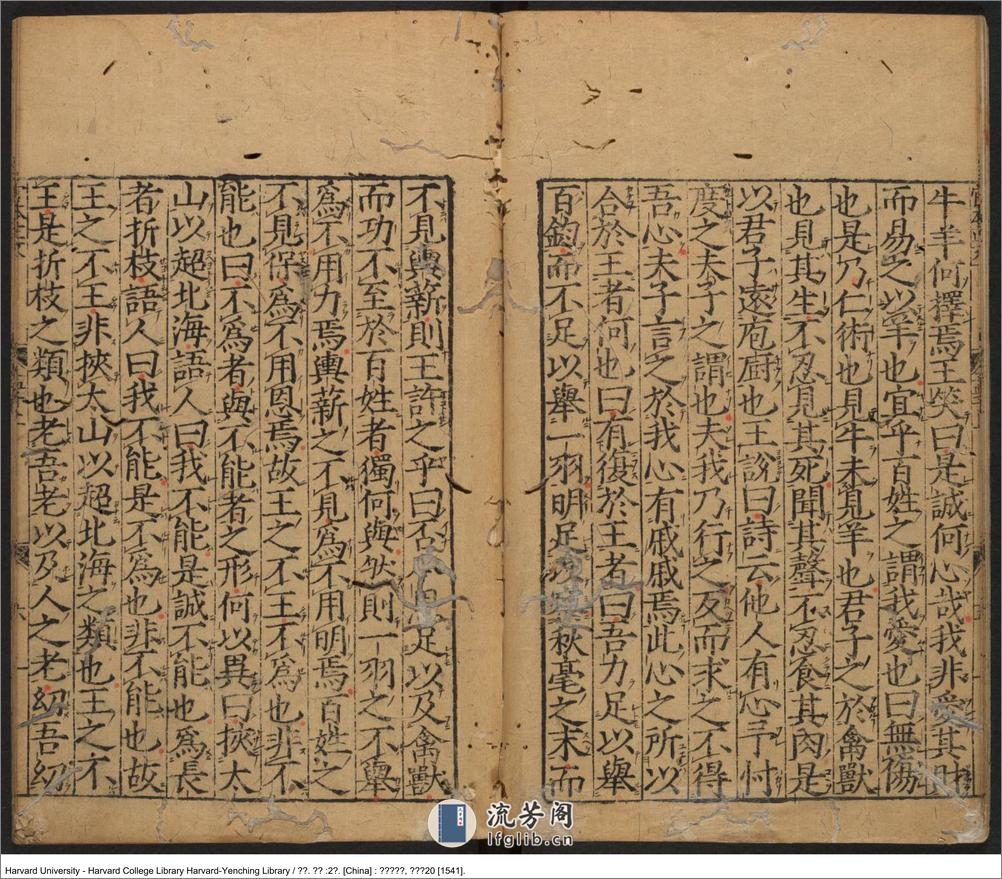 牛羊何擇焉王笑曰是誠何心哉我非愛其財
而易之以羊也宜乎百姓之謂我愛也曰無傷
也是乃仁術也見牛未見羊也君子之於禽獸
也見其生不忍見其死聞其聲不忍食其肉是
以君子遠庖廚也王說曰詩云他人有心予忖
度之夫子之謂也夫我乃行之反而求之不得
吾心夫子言之於我心有戚戚焉此心之所以
合於王者何也曰有復於王者曰吾力足以舉
百鈞而不足以舉一羽明足以察秋毫之末而
不見輿薪則王許之乎曰否 足以及禽獸
而功不至於百姓者獨何與然則一羽之不舉
爲不用力焉輿薪之不見爲不用明焉百姓之
不見保爲不用恩焉故王之不王不爲也非不
能也曰不爲者與不能者之形何以異曰挾太
山以超北海語人曰我不能是誠不能也爲長
者折枝語人曰我不能是不爲也非不能也故
王之不王非挾太山以超北海之類也王之不
王是折枝之類也老吾老以及人之老幼吾幼
流芳阁
lfglib.cn
Harvard University - Harvard College Library Harvard-Yenching Library / ??. ?? :2?. [China] : ?????, ???20 [1541].